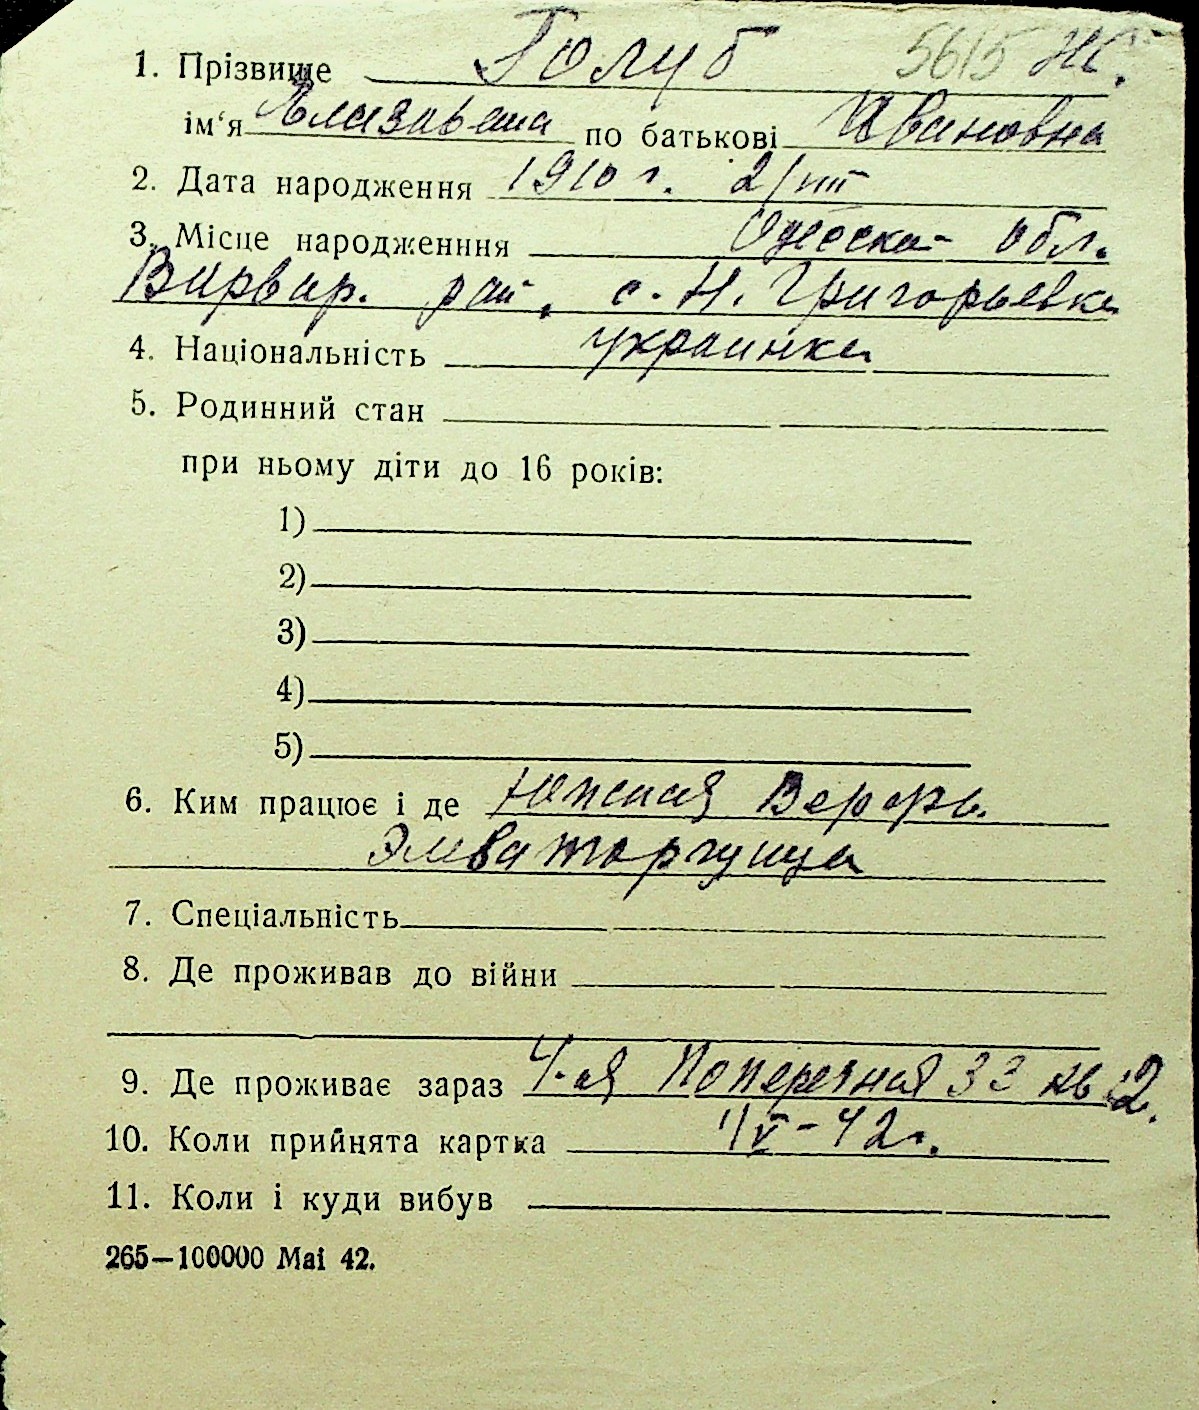 5615 Ж.
1. Прізвище Голуб
ім‘я Елизавета по батькові Ивановна
2. Дата народження 1910 г. 2/VIII
3. Місце народженння Одесская обл.
Варвар. рай. с. Н. Григорьевка
4. Національність украинка
5. Родинний стан
при ньому діти до 16 років:
1)
2)
3)
4)
5)
6. Ким працює і де Южная Верфь.
7. Спеціальність
8. Де проживав до війни
9. Де проживає зараз 4-ая Поперечная 33 кв 2.
10. Коли прийнята картка 1/V-42г.
11. Коли і куди вибув
265—100000 Mai 42.